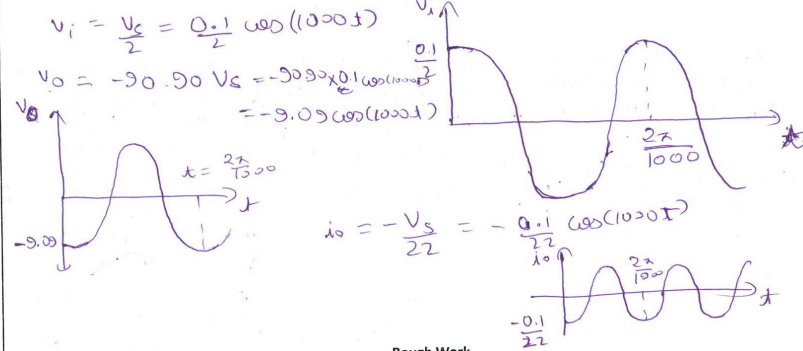 Vi = Vs/2 = 0.1/2 cos(1000t)
Vo = -90.90 Vs = -90.90×0.1 cos(1000t)
= -9.09 cos(1000t)
Vi
0.1/2
2π/1000
t
Vo
t = 2π/1000
t
-9.09
io = -Vs/22 = - 0.1/22 cos(1000t)
io
2π/1000
t
-0.1/22
Rough Work